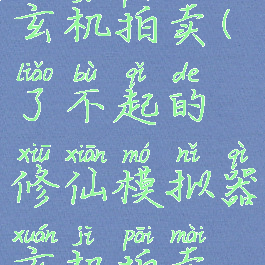 玄机拍卖(
liǎo bù qǐ de
了不起的
xiū xiān mó nǐ qì
修仙模拟器
xuán jī pāi mài
玄机拍卖